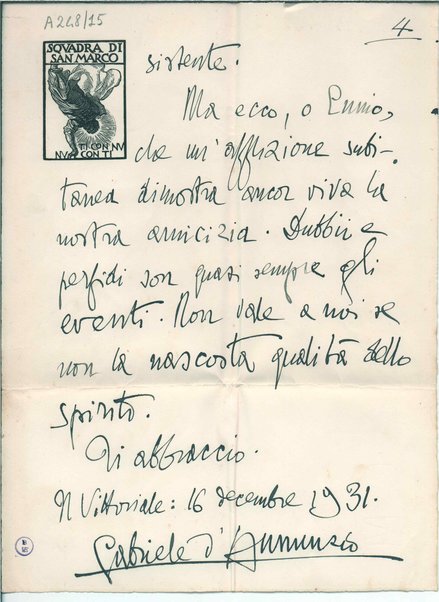 A248/15
4
SQVADRA DI
SAN MARCO
TI CON NV
NV CON TI
sistente.
Ma ecco, o Ennio,
che un'afflizione subi-
tanea dimostra ancor viva la
nostra amicizia. Dubbii e
perfidi son quasi sempre gli
eventi. Non vale a noi se
non la nascosta qualità dello
spirito.
Ti abbraccio.
Il Vittoriale: 16 decembre 1931.
Gabriele d'Annunzio